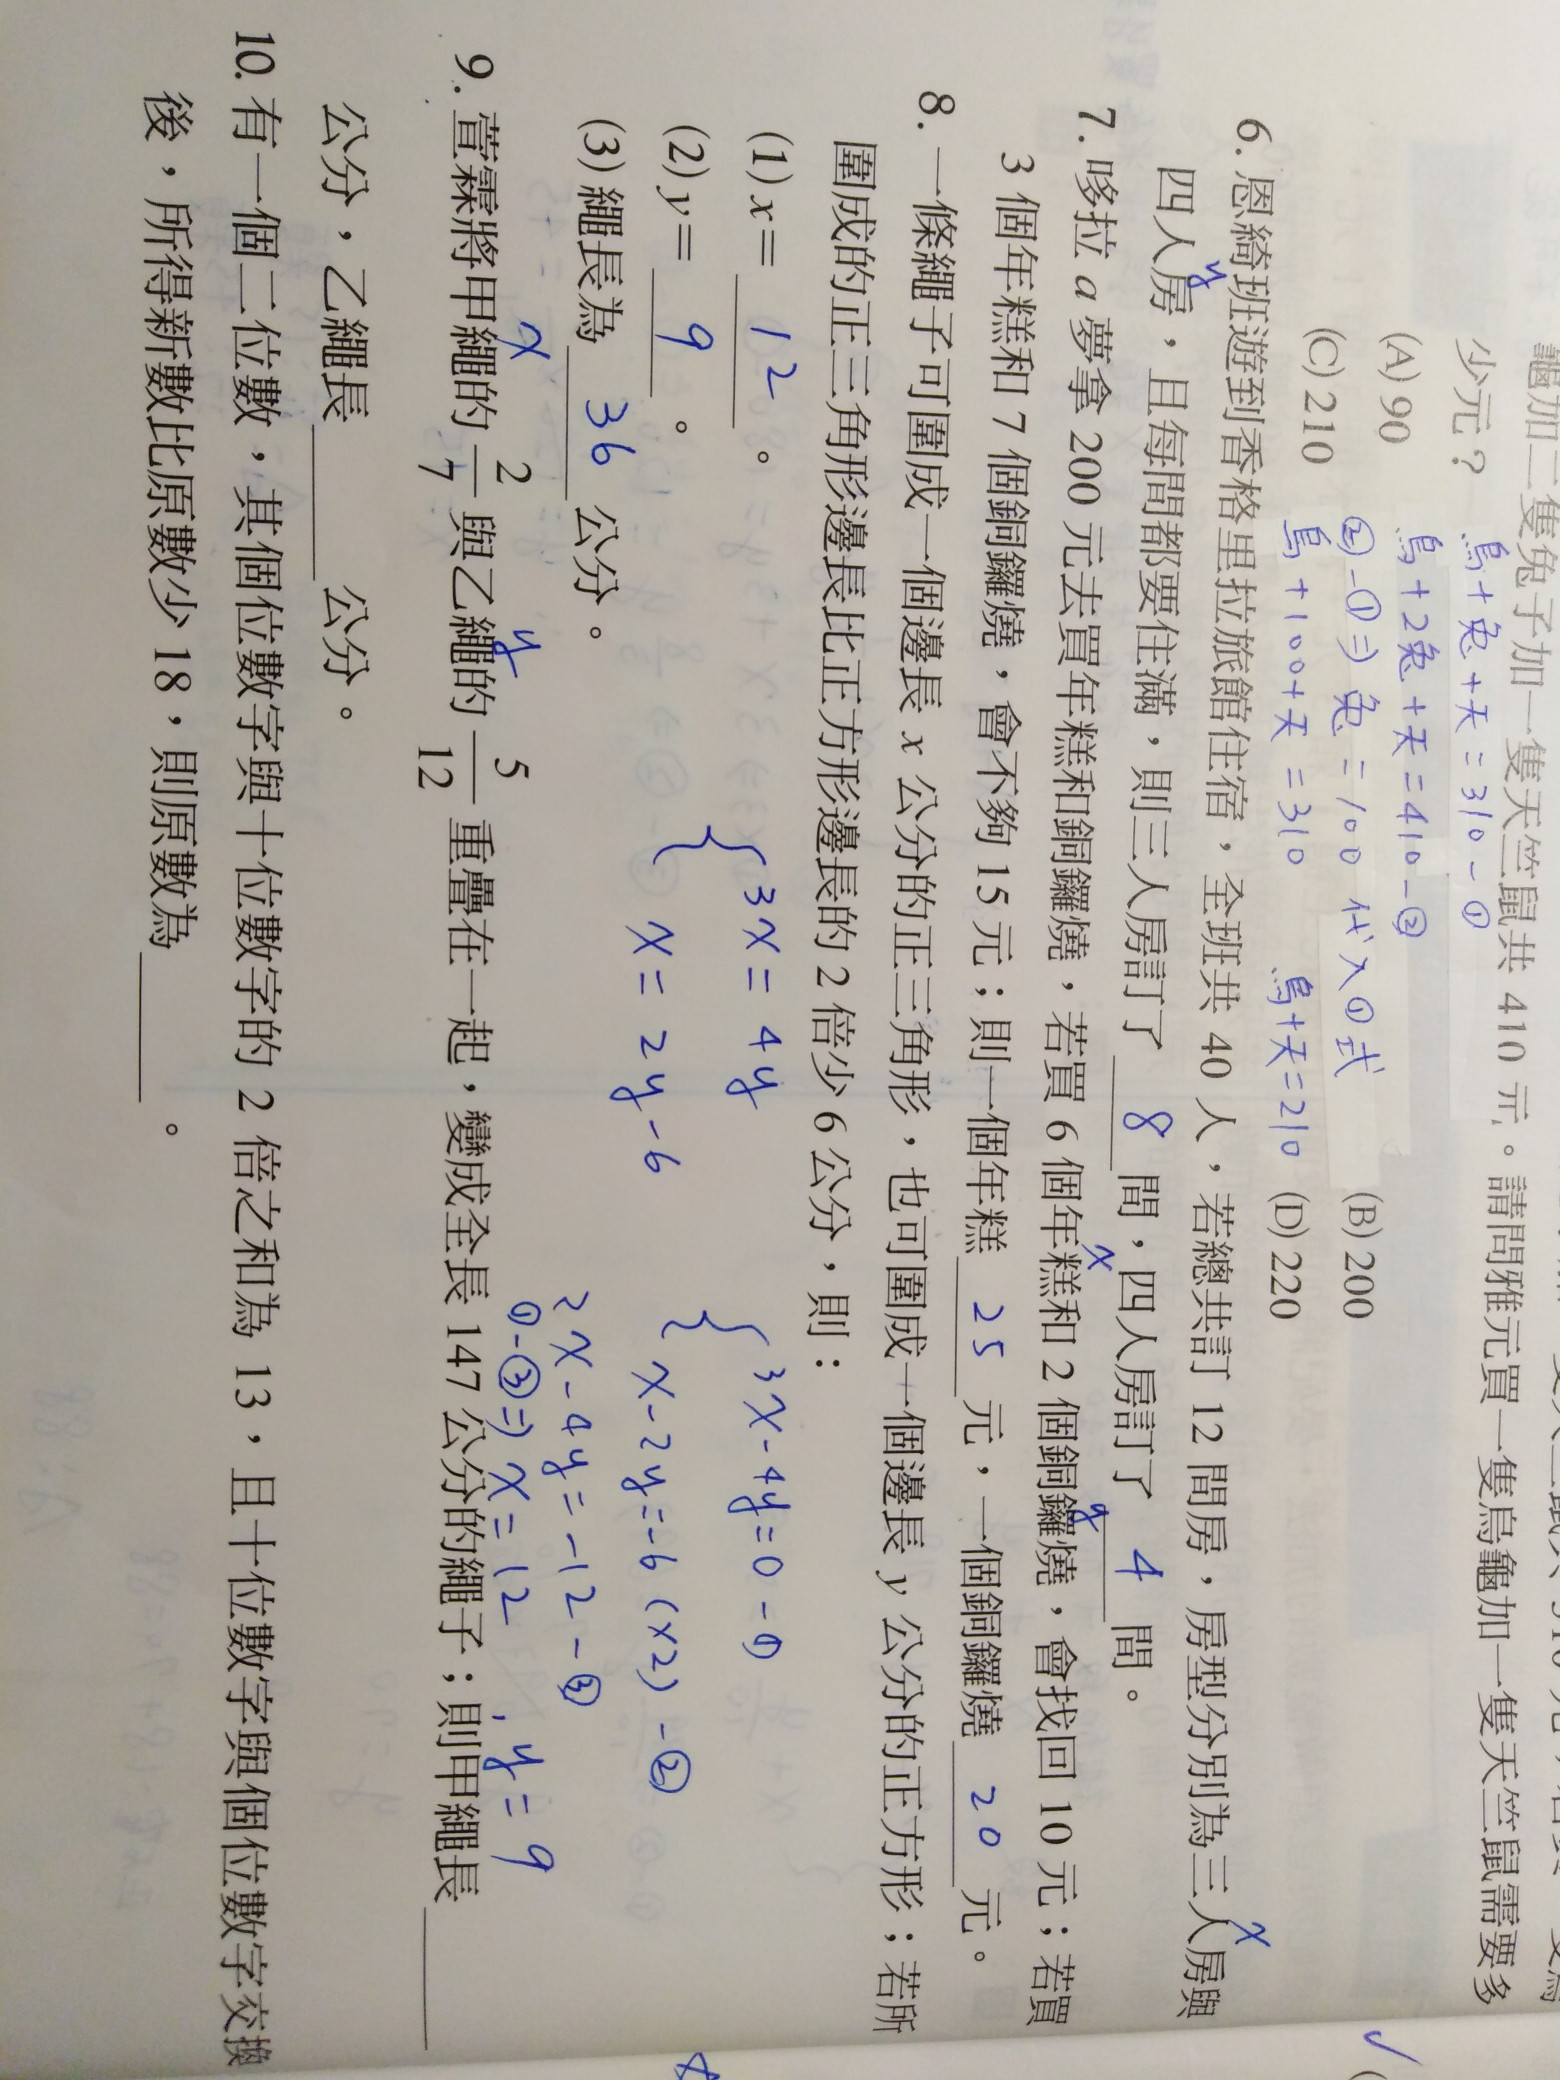 龜加二隻兔子加一隻天竺鼠共 410 元。請問雅元買一隻烏龜加一隻天竺鼠需要多
少元？
烏+兔+天=310-①
(A) 90
烏+2兔+天=410-②
(B) 200
②-①⇒兔=100 代入①式
(C) 210
烏+100+天=310
烏+天=210
(D) 220
6. 恩綺班遊到香格里拉旅館住宿，全班共 40 人，若總共訂 12 間房，房型分別為三人房與
x
四人房，且每間都要住滿，則三人房訂了 8 間，四人房訂了 4 間。
y
7. 哆拉 a 夢拿 200 元去買年糕和銅鑼燒，若買 6 個年糕和 2 個銅鑼燒，會找回 10 元；若買
x
y
3 個年糕和 7 個銅鑼燒，會不夠 15 元；則一個年糕 25 元，一個銅鑼燒 20 元。
8. 一條繩子可圍成一個邊長 x 公分的正三角形，也可圍成一個邊長 y 公分的正方形；若所
圍成的正三角形邊長比正方形邊長的 2 倍少 6 公分，則：
(1) x= 12 。
(2) y= 9 。
(3) 繩長為 36 公分。
{ 3x=4y
x=2y-6
{ 3x-4y=0-①
x-2y=-6 (x2) -②
2x-4y=-12-③
①-③⇒x=12、y=9
9. 萱霖將甲繩的 2/7 與乙繩的 5/12 重疊在一起，變成全長 147 公分的繩子；則甲繩長
x
y
公分，乙繩長 公分。
10. 有一個二位數，其個位數字與十位數字的 2 倍之和為 13，且十位數字與個位數字交換
後，所得新數比原數少 18，則原數為 。